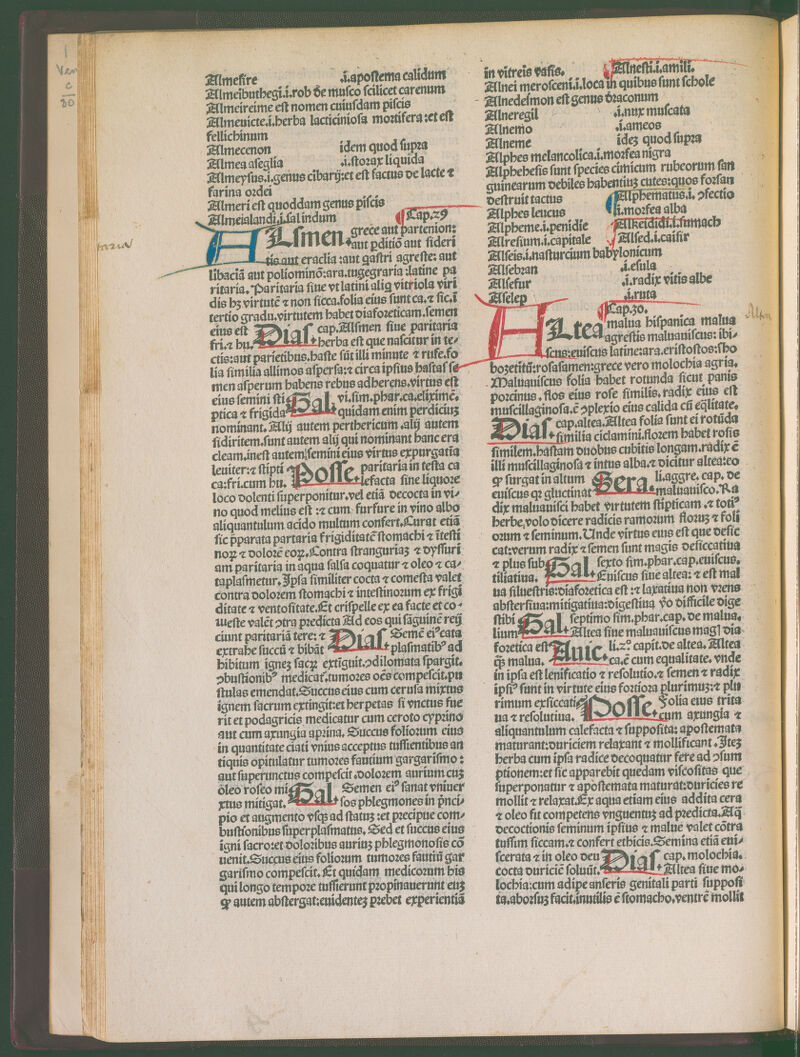 Almesire .i.apostema calidum
Almeibuthegi.i.rob de musco scilicet carenum
Almeireime est nomen cuiusdam piscis
Almeuicte.i.herba lacticiniosa mortifera:et est
fellichinum
Almecenon idem quod supra
Almea aseglia .i.storax liquida
Almeysus.i.genus cibarij:et est factus de lacte ⁊
farina ordei
Almeri est quoddam genus piscis
Almeialandi.i.sal indum Cap.29
ALsmen grece aut partenion:
aut pditiō aut sideri
tis aut eraclia :aut gastri agreste: aut
libaciā aut poliominō:ara.tugegraria :latine pa
ritaria. Paritaria siue vt latini aliq̄ vitriola viri
dis hȝ virtutē ⁊ non sicca.folia eius sunt ca.⁊ sic.i
tertio gradu.virtutem habet diaforeticam.semen
eius est Dias. cap.Alsmen siue paritaria
fri.⁊ hu. herba est que nascitur in te-
ctis:aut parietibus.haste sūt illi minute ⁊ rufe.fo
lia similia allimos aspersa:⁊ circa ipsius hastas se
men asperum habens rebus adherens.virtus est
eius semini sti Gal. vi.sim.phar.ca.elixinē.
ptica ⁊ frigida quidam enim perdicius
nominant. Alij autem perthericum .alij autem
sidiritem.sunt autem alij qui nominant hanc era
cleam.inest autem semini eius virtus expurgatia
leniter:⁊ stipti Posse. paritaria in testa ca
ca:fri.cum hu. lefacta sine liquore
loco dolenti superponitur.vel etiā decocta in vi-
no quod melius est :⁊ cum furfure in vino albo
aliquantulum acido multum confert.Curat etiā
sic p̄parata partaria frigiditatē stomachi ⁊ ītesti
noꝝ ⁊ dolorē eoꝝ.Contra stranguriaȝ ⁊ dyssuri
am paritaria in aqua salsa coquatur ⁊ oleo ⁊ ca-
taplasmetur.Ipsa similiter cocta ⁊ comesta valet
contra dolorem stomachi ⁊ intestinorum ex frigi
ditate ⁊ ventositate.Et crispelle ex ea facte et co-
meste valēt ꝯtra predicta Ad eos qui sāguinē reij
ciunt paritariā tere: ⁊ Dias. Semē eiꝰcata
extrahe succū ⁊ bibāt plasmatibꝰ ad
hibitum igneȝ sacꝝ extiguit.ꝯdilomata spargit.
ꝯbustionibꝰ medicat̄.tumores oēs compescit.pu
stulas emendat.Succus eius cum cerusa mixtus
ignem sacrum extingit:et herpetas si vnctus fue
rit et podagricis medicatur cum ceroto cyprino
aut cum axungia aprina. Succus foliorum eius
in quantitate ciati vnius acceptus tussientibus an
tiquis opitulatur tumores fautium gargarismo :
aut superunctus compescit .dolorem aurium cuȝ
oleo roseo mi Gal. Semen eiꝰ sanat vniuer
xtus mitigat. sos phlegmones in p̄nci-
pio et augmento vsqȝ ad statuȝ :et precipue com-
bustionibus superplasmatus, Sed et succus eius
igni sacro:et doloribus auriuȝ phlegmonosis cō
uenit.Succus eius foliorum tumores fautiū gar
garismo compescit. Et quidam medicorum his
qui longo tempore tussierunt propinauerunt euȝ
ꝙ autem abstergat:euidenteȝ prebet experientiā
in vitreis vasis. Alnesti.i.amili.
Alnei meroscení.i.loca in quibus sunt schole
Alnedesmon est genus draconum
Alneregil .i.nux muscata
Alnemo .i.ameos
Alneme ideȝ quod supra
Alphes melancolica.i.morfea nigra
Alphehesis sunt species cimicum rubeorum san
guinearum debiles habentiuȝ cutes:quos forsan
destruit tactus Alphematus.i. ꝯfectio
Alphes leucus .i.morfea alba
Alpheme.i.penidie Alkeididi.i.sumach
Alresium.i.capitale Alsed.i.caisir
Alseis.i.nasturcium babylonicum
Alseb:an .i.esula
Alsefur .i.radix vitis albe
Alselep .i.ruta
Cap.30.
ALtea malua hispanica malua
agrestis maluauiscus: ibi-
scus:euiscus latine:ara.eristostos:sho
hoȝetitū:rosasamen:grece vero molochia agria.
Maluauiscus folia habet rotunda sicut panis
porcinus, flos eius rose similis.radix eius est
muscillaginosa.ē ꝯplexio eius calida cū eq̄litate.
Dias. cap.altea.Altea folia sunt ei rotūda
similia ciclamini.florem habet rosis
similem.hastam duobus cubitis longam.radix ē
illi muscillaginosa ⁊ intus alba.⁊ dicitur altea:eo
ꝙ surgat in altum Sera. li.aggre. cap. de
euiscus qꝛ gluctinat maluauisco.Ra
dix maluauisci habet virtutem stipticam .⁊ totiꝰ
herbe,volo dicere radicis ramorum floruȝ ⁊ foli
orum ⁊ seminum.Unde virtus eius est que desic
cat:verum radix ⁊ semen sunt magis desiccatiua
⁊ plus sub Gal. sexto sim.phar.cap.euiscus.
tiliatiua. Euiscus siue altea: ⁊ est mal
ua siluestris:diaforetica est :⁊ laxatiua non vrens
abstersiua:mitigatiua:digestiua v̄o difficile dige
stibi Gal. septimo sim.phar.cap. de malua.
lium Altea siue maluauiscus magꝭ dia
foretica est Auic. li.2.° capit.de altea. Altea
q̄ꝫ malua. ca.ē cum equalitate. vnde
in ipsa est lenificatio ⁊ resolutio.⁊ semen ⁊ radix
ipsiꝰ sunt in virtute eius fortiora plurimuȝ:⁊ plu
rimum exsiccatiua Posse. Folia eius trita
ua ⁊ resolutiua. cum axungia ⁊
aliquantulum calefacta ⁊ supposita: apostemata
maturant:duriciem relaxant ⁊ mollificant .Iteȝ
herba cum ipsa radice decoquatur fere ad ꝯsum
ptionem:et sic apparebit quedam viscositas que
superponatur ⁊ apostemata maturat:duricies re
mollit ⁊ relaxat.Ex aqua etiam eius addita cera
⁊ oleo fit competens vnguentuȝ ad predicta.Aq̄
decoctionis seminum ipsius ⁊ malue valet cōtra
tussim siccam.⁊ confert ethicis.Semina etiā eui-
scerata ⁊ in oleo deu Dias. cap. molochia.
cocta duriciē soluūt. Altea siue mo-
lochia:cum adipe anseris genitali parti supposi
ta.aborsuȝ facit.inutilis ē stomacho.ventrē mollit